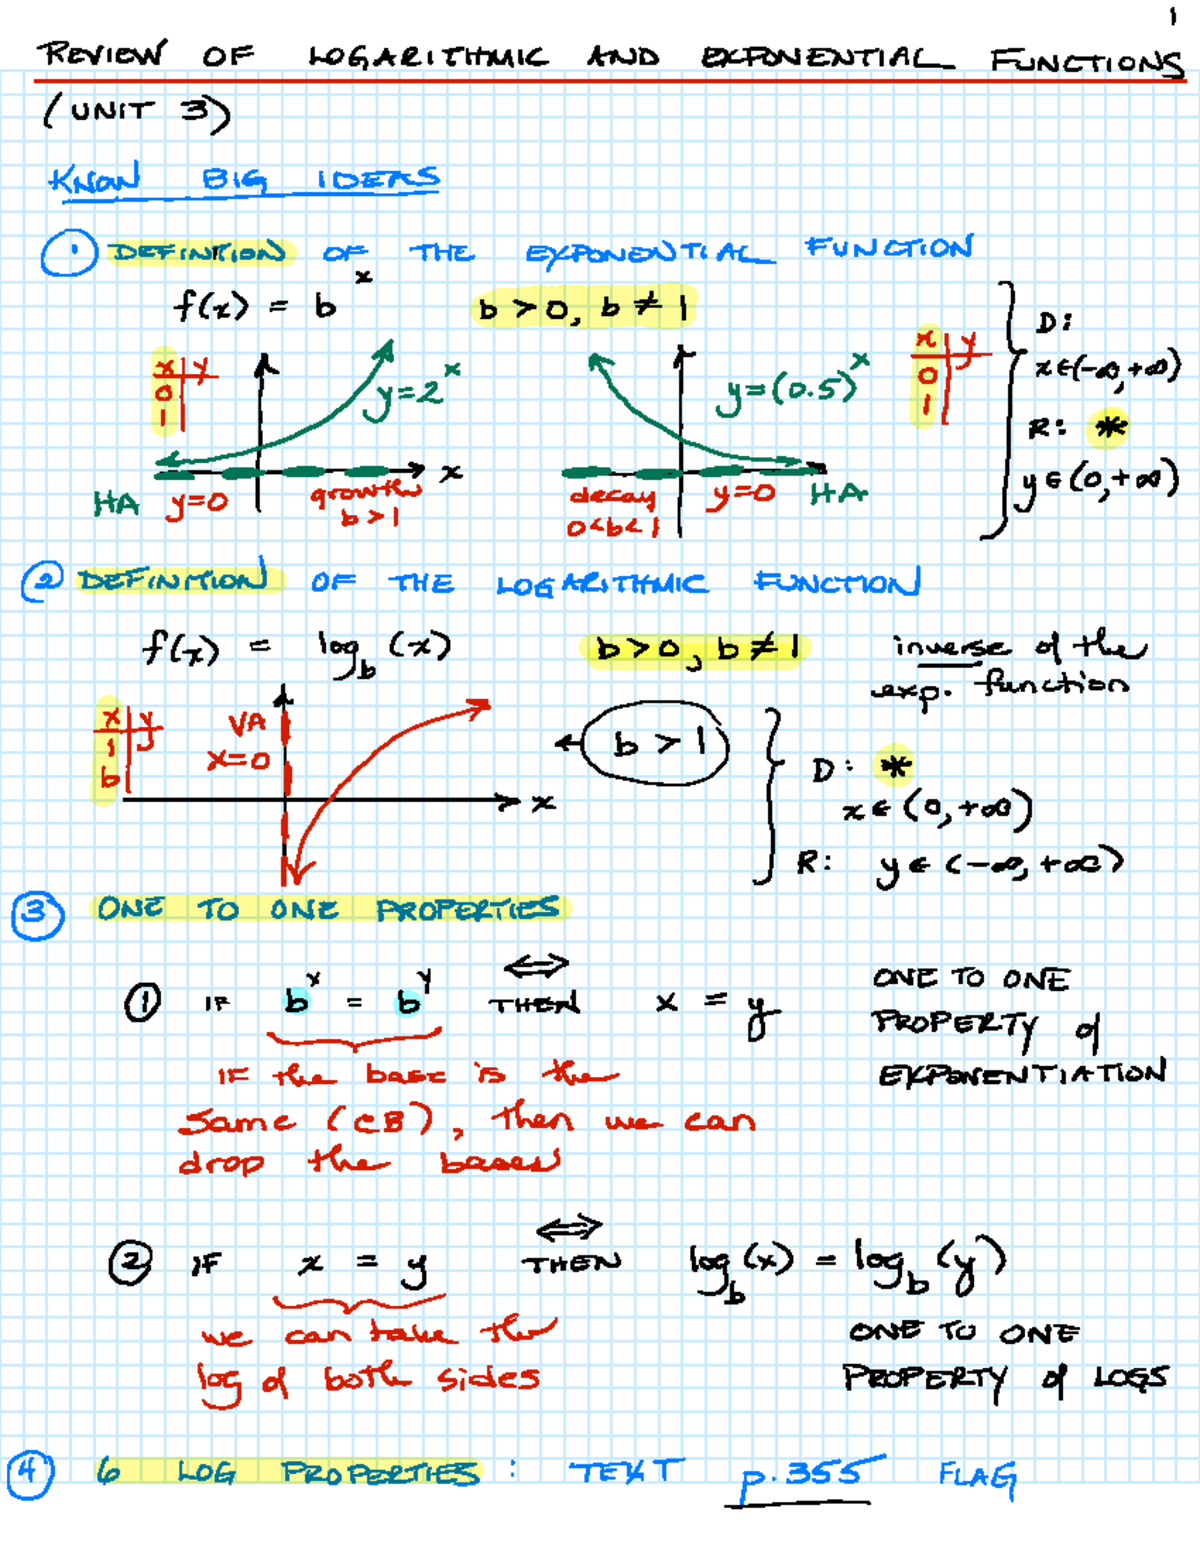 1
REVIEW OF LOGARITHMIC AND EXPONENTIAL FUNCTIONS
(UNIT 3)
KNOW BIG IDEAS
① DEFINITION OF THE EXPONENTIAL FUNCTION
f(x) = b^x b > 0, b ≠ 1
x | y
0
1
y = 2^x
x
HA y=0 growth
b > 1
y = (0.5)^x
decay y=0 HA
0<b<1
x | y
0
1
D:
x∈(-∞,+∞)
R: *
y∈(0,+∞)
② DEFINITION OF THE LOGARITHMIC FUNCTION
f(x) = log_b (x) b>0, b≠1 inverse of the
exp. function
x | y
1
b
VA
x=0
x
← b > 1
D: *
x∈(0,+∞)
R: y∈(-∞,+∞)
③ ONE TO ONE PROPERTIES
① IF b^x = b^y ⇔ THEN x = y
ONE TO ONE
PROPERTY of
EXPONENTIATION
IF the base is the
same (CB), then we can
drop the bases
② IF x = y ⇔ THEN log_b (x) = log_b (y)
we can take the
log of both sides
ONE TO ONE
PROPERTY of LOGS
④ 6 LOG PROPERTIES: TEXT p.355 FLAG